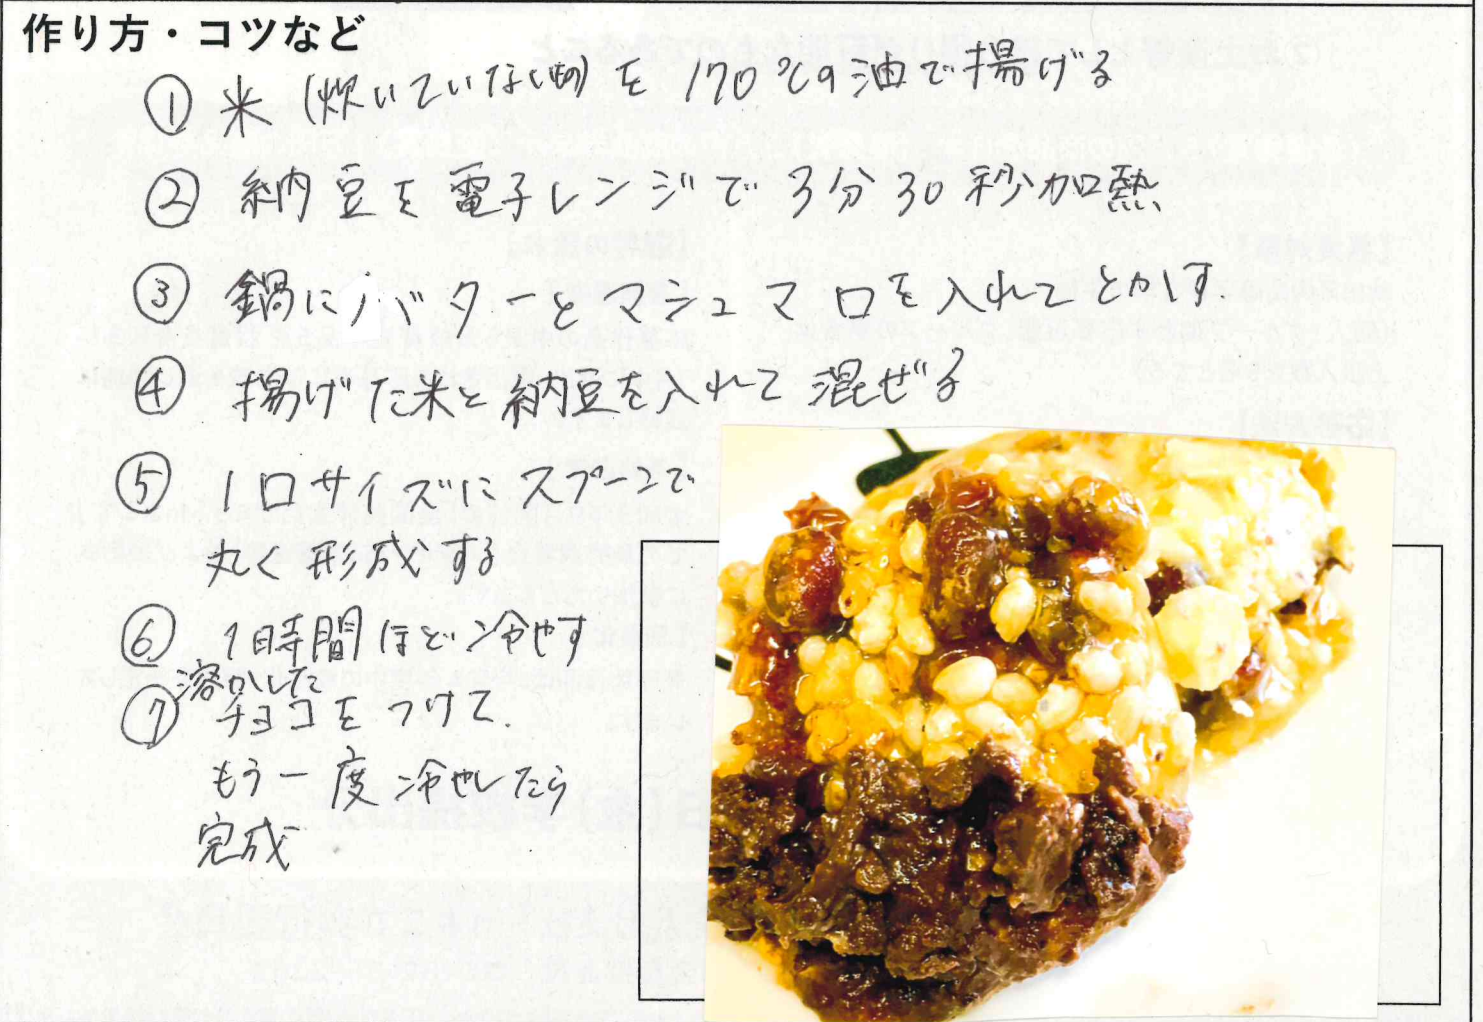 作り方・コツなど
① 米(炊いていない物)を170℃の油で揚げる
② 納豆を電子レンジで3分30秒加熱
③ 鍋にバターとマシュマロを入れてとかす
④ 揚げた米と納豆を入れて混ぜる
⑤ 1口サイズにスプーンで
丸く形成する
⑥ 1時間ほど冷やす
⑦ 溶かした
チョコをつけて、
もう一度冷やしたら
完成